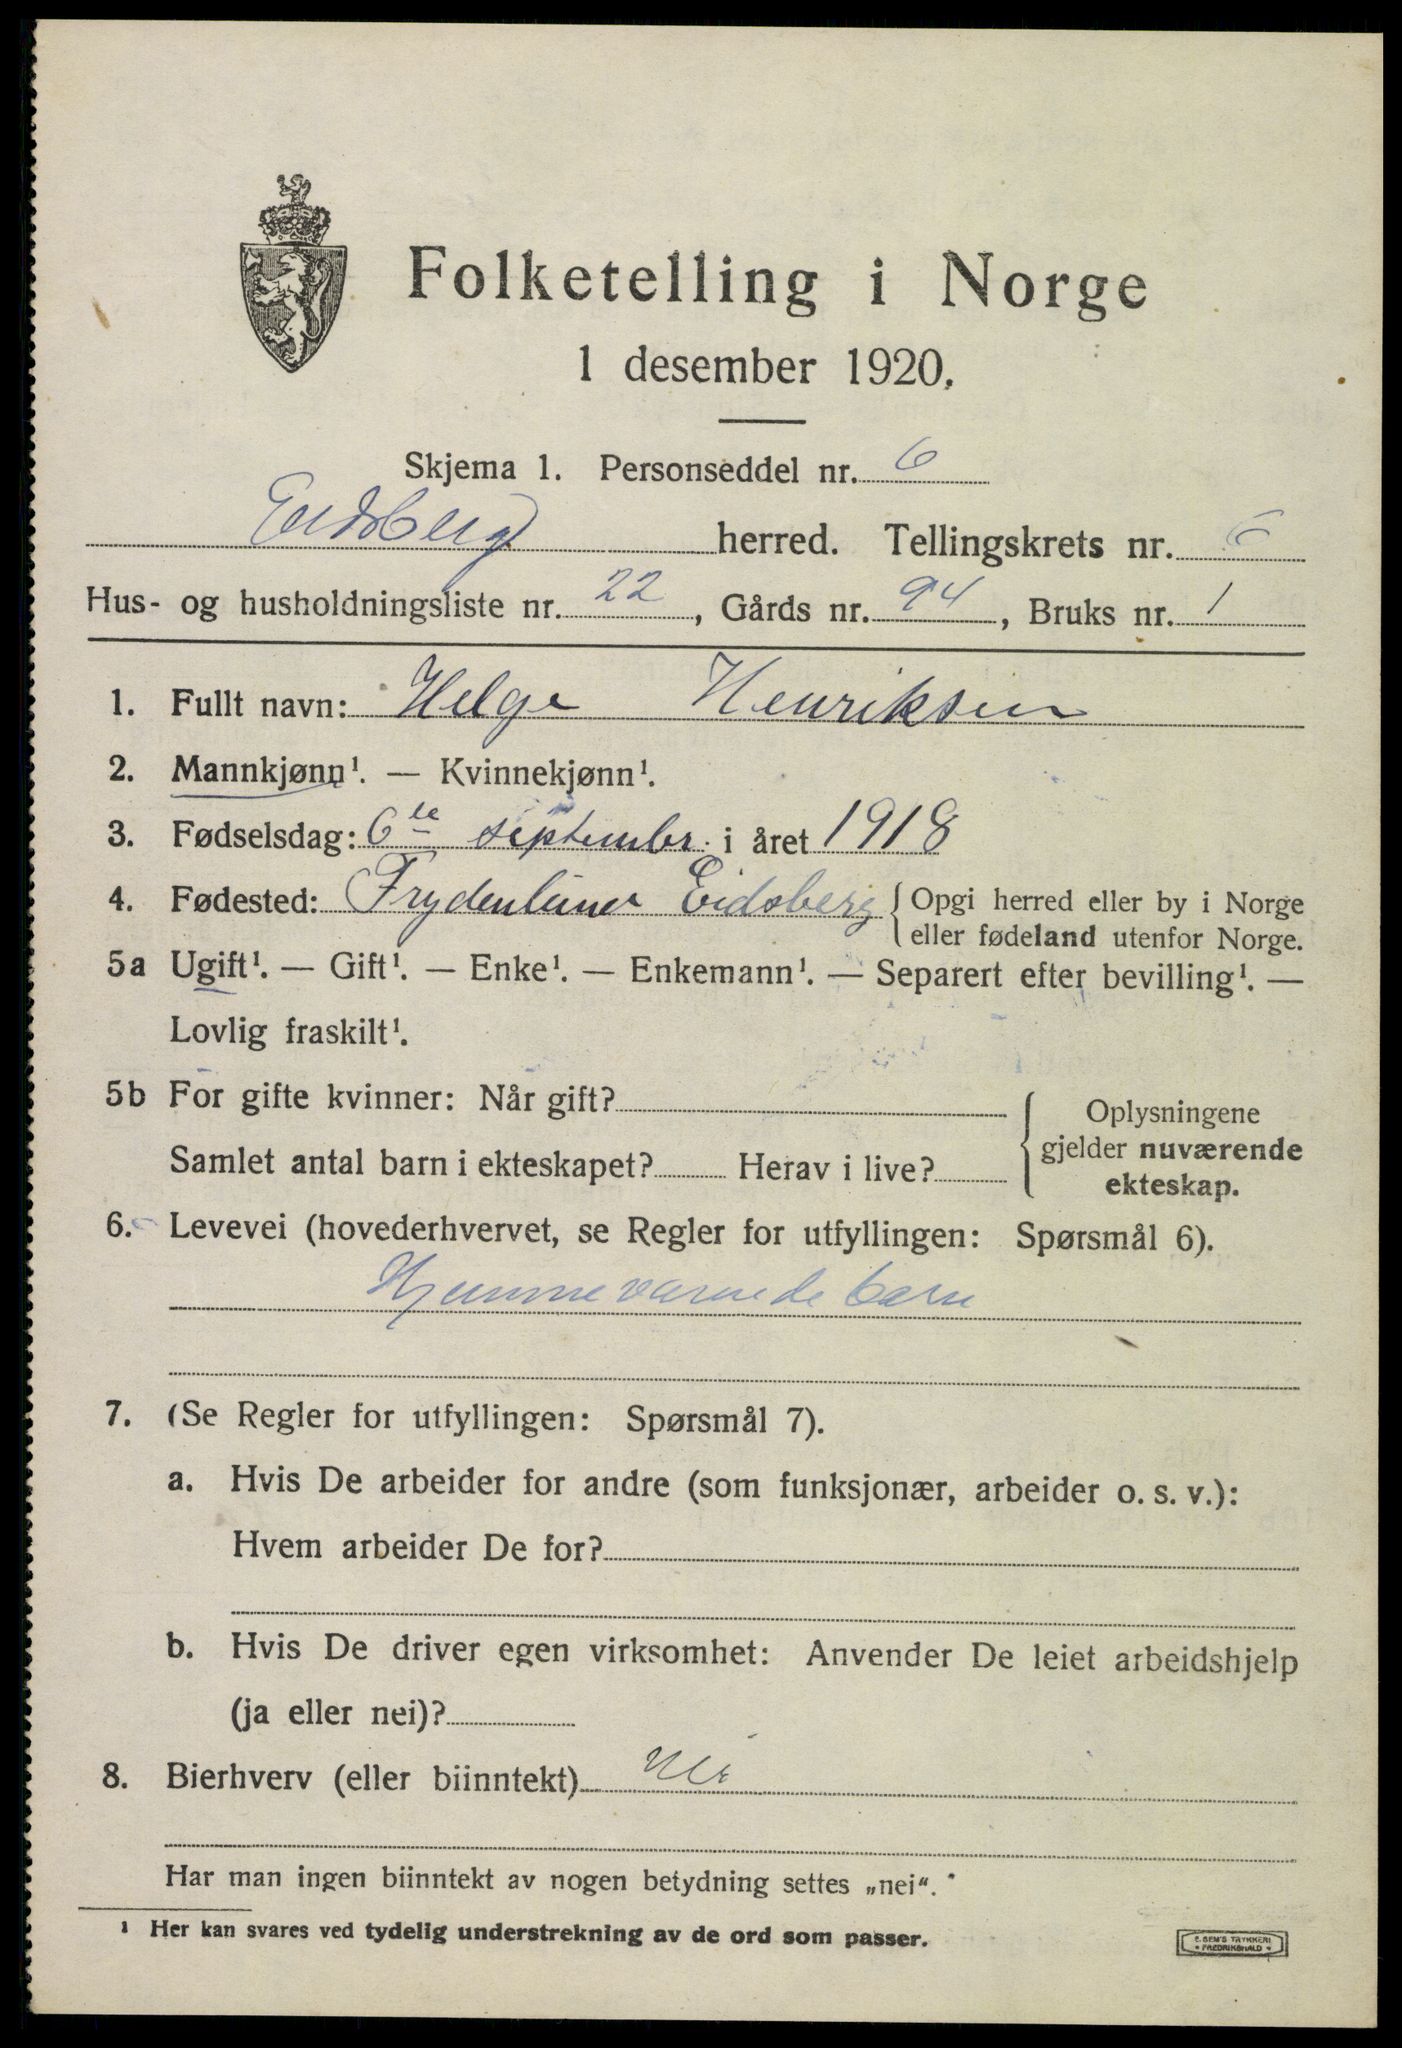 Folketelling i Norge
1 desember 1920.
Skjema 1. Personseddel nr. 6
Eidsberg herred. Tellingskrets nr. 6
Hus- og husholdningsliste nr. 22, Gårds nr. 94, Bruks nr. 1
1. Fullt navn: Helge Henriksen
2. Mannkjønn¹. — Kvinnekjønn¹.
3. Fødselsdag: 6te septembr. i året 1918
4. Fødested: Eidsberg { Opgi herred eller by i Norge
eller fødeland utenfor Norge.
5a Ugift¹. — Gift¹. — Enke¹. — Enkemann¹. — Separert efter bevilling¹. —
Lovlig fraskilt¹.
5b For gifte kvinner: Når gift?
Samlet antal barn i ekteskapet? Herav i live?
{ Oplysningene
gjelder nuværende
ekteskap.
6. Levevei (hovederhvervet, se Regler for utfyllingen: Spørsmål 6).
Hjemmeværende barn
7. (Se Regler for utfyllingen: Spørsmål 7).
a. Hvis De arbeider for andre (som funksjonær, arbeider o. s. v.):
Hvem arbeider De for?
b. Hvis De driver egen virksomhet: Anvender De leiet arbeidshjelp
(ja eller nei)?
8. Bierhverv (eller biinntekt) Nei
Har man ingen biinntekt av nogen betydning settes „nei“.
¹ Her kan svares ved tydelig understrekning av de ord som passer.
E. SEM'S TRYKKERI
FREDRIKSHALD